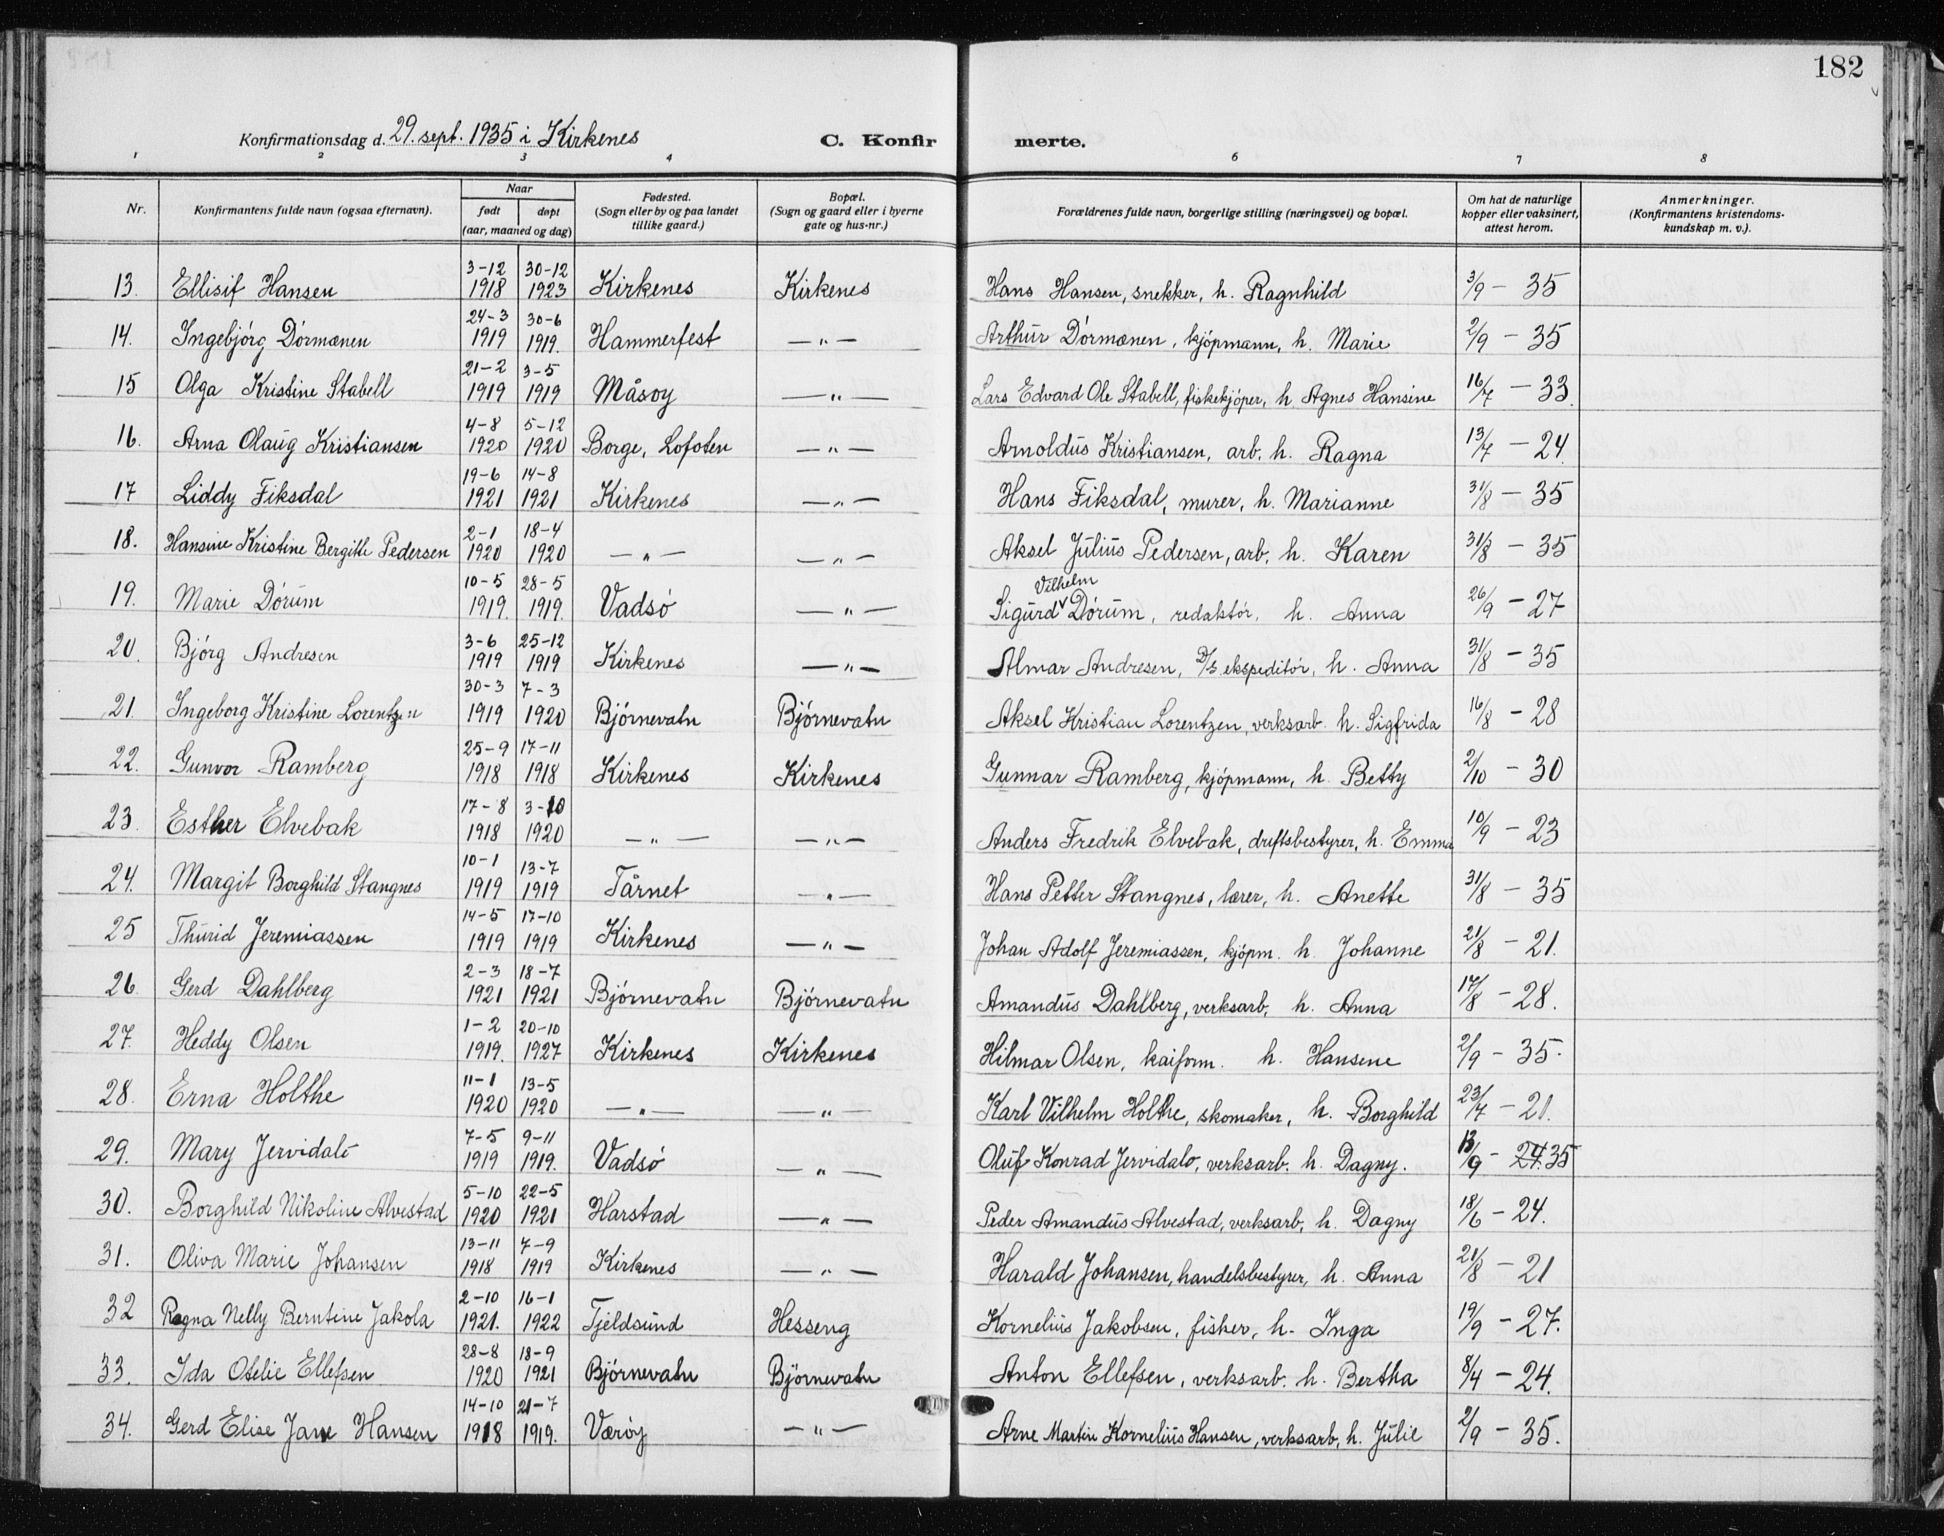 182
Konfirmationsdag d. 29. sept. 1935 i Kirkenes C. Konfir merte.
1 2 3 4 6 7 8
Nr. Konfirmantens fulde navn (ogsaa efternavn). Naar født døpt (aar, maaned og dag) Fødested. (Sogn eller by og paa landet tillike gaard.) Bopæl. (Sogn og gaard eller i byerne gate og hus-nr.) Forældrenes fulde navn, borgerlige stilling (næringsvei) og bopæl. Om hat de naturlige kopper eller vaksinert, attest herom. Anmerkninger. (Konfirmantens kristendoms-kundskap m. v.).
13. Ellisif Hansen 3-12 1918 30-12 1923 Kirkenes Kirkenes Hans Hansen, snekker, h. Ragnhild 3/9 - 35
14. Ingebjórg Dórmænen 24-3 1919 30-6 1919. Hammerfest —"— Arthur Dórmænen, kjópmann, h. Marie 2/9 - 35
15 Olga Kristine Stabell 21-2 1919 3-5 1919 Måsoy —"— Lars Edvard Ole Stabell, fiskekjóper, h. Agnes Hansine 16/7 - 33.
16. Arna Olaug Kristiansen 4-8 1920 5-12 1920 Borge, Lofoten —"— Arnoldus Kristiansen, arb. h. Ragna 13/7 - 24.
17 Liddy Fiksdal 19-6 1921 14-8 1921 Kirkenes —"— Hans Fiksdal, murer, h. Marianne 31/8 - 35
18. Hansine Kristine Bergitte Pedersen 2-1 1920 18-4 1920 —"— —"— Aksel Julius Pedersen, arb. h. Karen 31/8 - 35
19. Marie Dórum 10-5 1919. 28-5 1919. Vadsó —"— Sigurd Vilhelm Dórum, redaktór, h. Anna 26/9 - 27
20. Bjórg Andresen 3-6 1919 25-12 1919 Kirkenes —"— Almar Andresen, D/S ekspeditór, h. Anna 31/8 - 35
21. Ingeborg Kristine Lorentzen 30-3 1919 7-3 1920 Bjórnevatn Bjórnevatn Aksel Kristian Lorentzen, verksarb. h. Sigfrida 16/8 - 28
22. Gunvor Ramberg 25-9 1918 17-11 1918 Kirkenes Kirkenes Gunnar Ramberg, kjópmann, h. Betty 2/10 - 30
23. Esther Elvebak 17-8 1918 3-10 1920 —"— —"— Anders Fredrik Elvebak, driftsbestyrer, h. Emma 10/9 - 23
24. Margit Borghild Stangnes 10-1 1919 13-7 1919 Tårnet —"— Hans Petter Stangnes, lærer, h. Anette 31/8 - 35
25 Thurid Jeremiassen 14-5 1919 17-10 1919 Kirkenes —"— Johan Adolf Jeremiassen, kjópm. h. Johanne 21/8 - 21.
26. Gerd Dahlberg 2-3 1921 18-7 1921 Bjórnevatn Bjórnevatn Amandus Dahlberg, verksarb. h. Anna 17/8 - 28.
27. Heddy Olsen 1-2 1919. 20-10 1927 Kirkenes Kirkenes Hilmar Olsen, kaiform. h. Hansene 2/9 - 35.
28. Erna Holthe 11-1 1920 13-5 1920 —"— —"— Karl Vilhelm Holthe, skomaker, h. Borghild 23/7 - 21.
29. Mary Jervidalo 7-5 1919 9-11 1919. Vadsó —"— Oluf Konrad Jervidalo, verksarb. h. Dagny. 13/9 - 24. 35
30. Borghild Nikoline Alvestad 5-10 1920 22-5 1921 Harstad —"— Peder Amandus Alvestad, verksarb. h. Dagny 18/6 - 24.
31. Oliva Marie Johansen 13-11 1918 7-9 1919 Kirkenes —"— Harald Johansen, handelsbestyrer, h. Anna 21/8 - 21
32 Ragna Nelly Berntine Jakola 2-10 1921. 16-1 1922 Tjeldsund Hesseng Kornelius Jakobsen, fisker, h. Inga 19/9 - 27.
33. Ida Otelie Ellefsen 28-8 1920 18-9 1921 Bjórnevatn Bjórnevatn Anton Ellefsen, verksarb. h. Bertha 8/4 - 24.
34. Gerd Elise Jane Hansen 14-10 1918 21-7 1919. Væróy —"— Arne Martin Kornelius Hansen, verksarb, h. Julie 2/9 - 35.